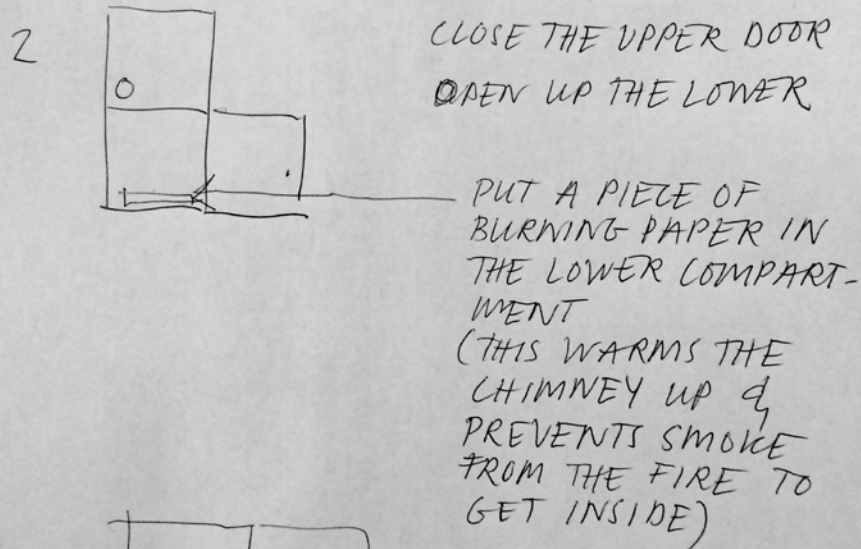 2
CLOSE THE UPPER DOOR
OPEN UP THE LOWER
PUT A PIECE OF
BURNING PAPER IN
THE LOWER COMPART-
MENT
(THIS WARMS THE
CHIMNEY UP &
PREVENTS SMOKE
FROM THE FIRE TO
GET INSIDE)